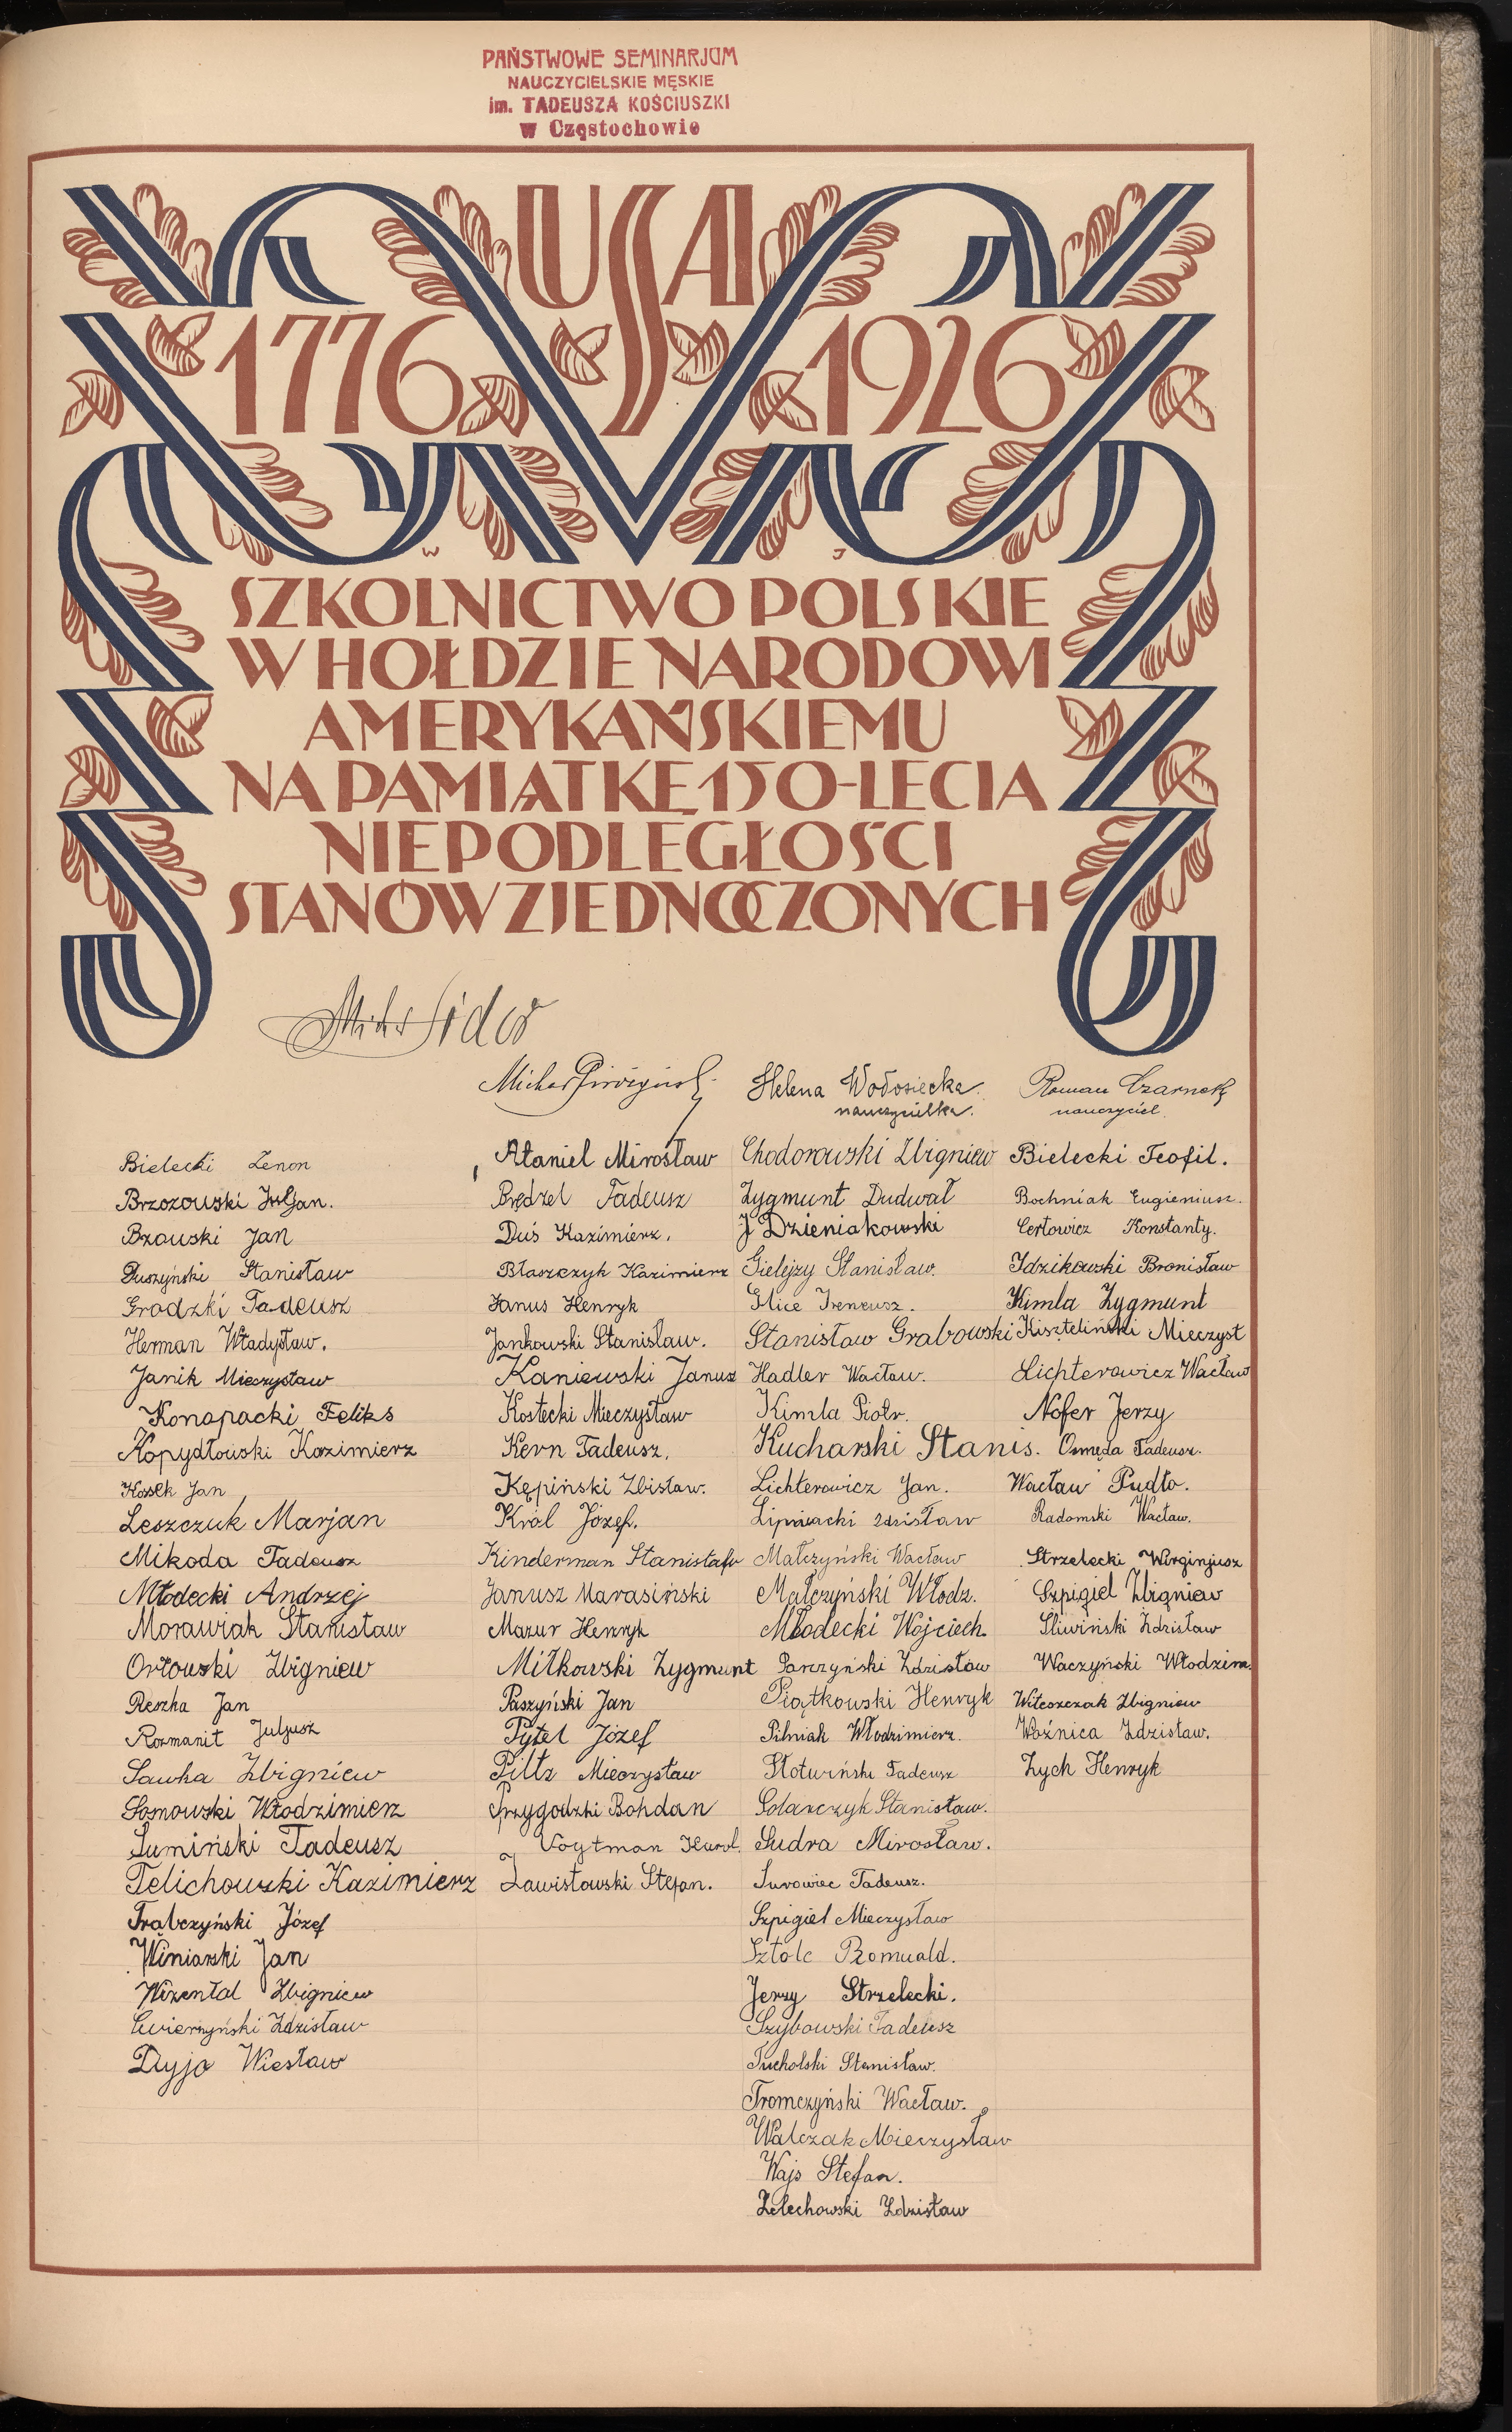 PAŃSTWOWE SEMINARJUM
NAUCZYCIELSKIE MĘSKIE
im. TADEUSZA KOŚCIUSZKI
w Częstochowie
USA
1776 1926
W J
SZKOLNICTWO POLSKIE
W HOŁDZIE NARODOWI
AMERYKAŃSKIEMU
NA PAMIĄTKĘ 150-LECIA
NIEPODLEGŁOŚCI
STANÓW ZJEDNOCZONYCH
Helena Wołosiecka.
nauczycielka.
Roman Czarnok
nauczyciel.
Bielecki Zenon
Brzozowski Juljan.
Bzowski Jan
Duszyński Stanisław
Grodzki Tadeusz
Herman Władysław.
Janik Mieczysław
Konopacki Feliks
Kopydłowski Kazimierz
Kossek Jan
Leszczuk Marjan
Mikoda Tadeusz
Młodecki Andrzej
Morawiak Stanisław
Orłowski Zbigniew
Reszka Jan
Rozmanit Juljusz
Sawka Zbigniew
Somowski Włodzimierz
Sumiński Tadeusz
Telichowski Kazimierz
Trąbczyński Józef
Winiarski Jan
Wizental Zbigniew
Ćwierzyński Zdzisław
Dyja Wiesław
Ataniel Mirosław
Brędzel Tadeusz
Duś Kazimierz.
Błaszczyk Kazimierz
Janus Henryk
Jankowski Stanisław.
Kaniewski Janusz
Kostecki Mieczysław
Kern Tadeusz.
Kępiński Zbisław.
Król Józef.
Kinderman Stanisław
Janusz Marasiński
Mazur Henryk
Miłkowski Zygmunt
Paszyński Jan
Pytel Józef
Piltz Mieczysław
Przygodzki Bohdan
Voytman Karol.
Zawisłowski Stefan.
Chodorowski Zbigniew
Zygmunt Dudwał
J Dzieniakowski
Gielejzy Stanisław.
Glice Ireneusz.
Stanisław Grabowski
Hadler Wacław.
Kimla Piotr.
Kucharski Stanis.
Lichterowicz Jan.
Lipowacki Zdzisław
Małczyński Wacław
Małczyński Włodz.
Młodecki Wojciech.
Parczyński Zdzisław
Piątkowski Henryk
Pilniak Włodzimierz.
Słotwiński Tadeusz
Solarczyk Stanisław.
Sudra Mirosław.
Surowiec Tadeusz.
Szpigiel Mieczysław
Sztolc Romuald.
Jerzy Strzelecki.
Szybowski Tadeusz
Tucholski Stanisław.
Tromczyński Wacław.
Walczak Mieczysław
Wajs Stefan.
Żelechowski Zdzisław
Bielecki Teofil.
Bochniak Eugieniusz.
Certowicz Konstanty.
Idzikowski Bronisław
Kimla Zygmunt
Kiszteliński Mieczysł
Lichterowicz Wacław
Nofer Jerzy
Osmęda Tadeusz.
Wacław Pudło.
Radomski Wacław.
Strzelecki Wirginjusz
Szpigiel Zbigniew
Śliwiński Zdzisław
Waczyński Włodzim.
Witeszczak Zbigniew
Woźnica Zdzisław.
Zych Henryk